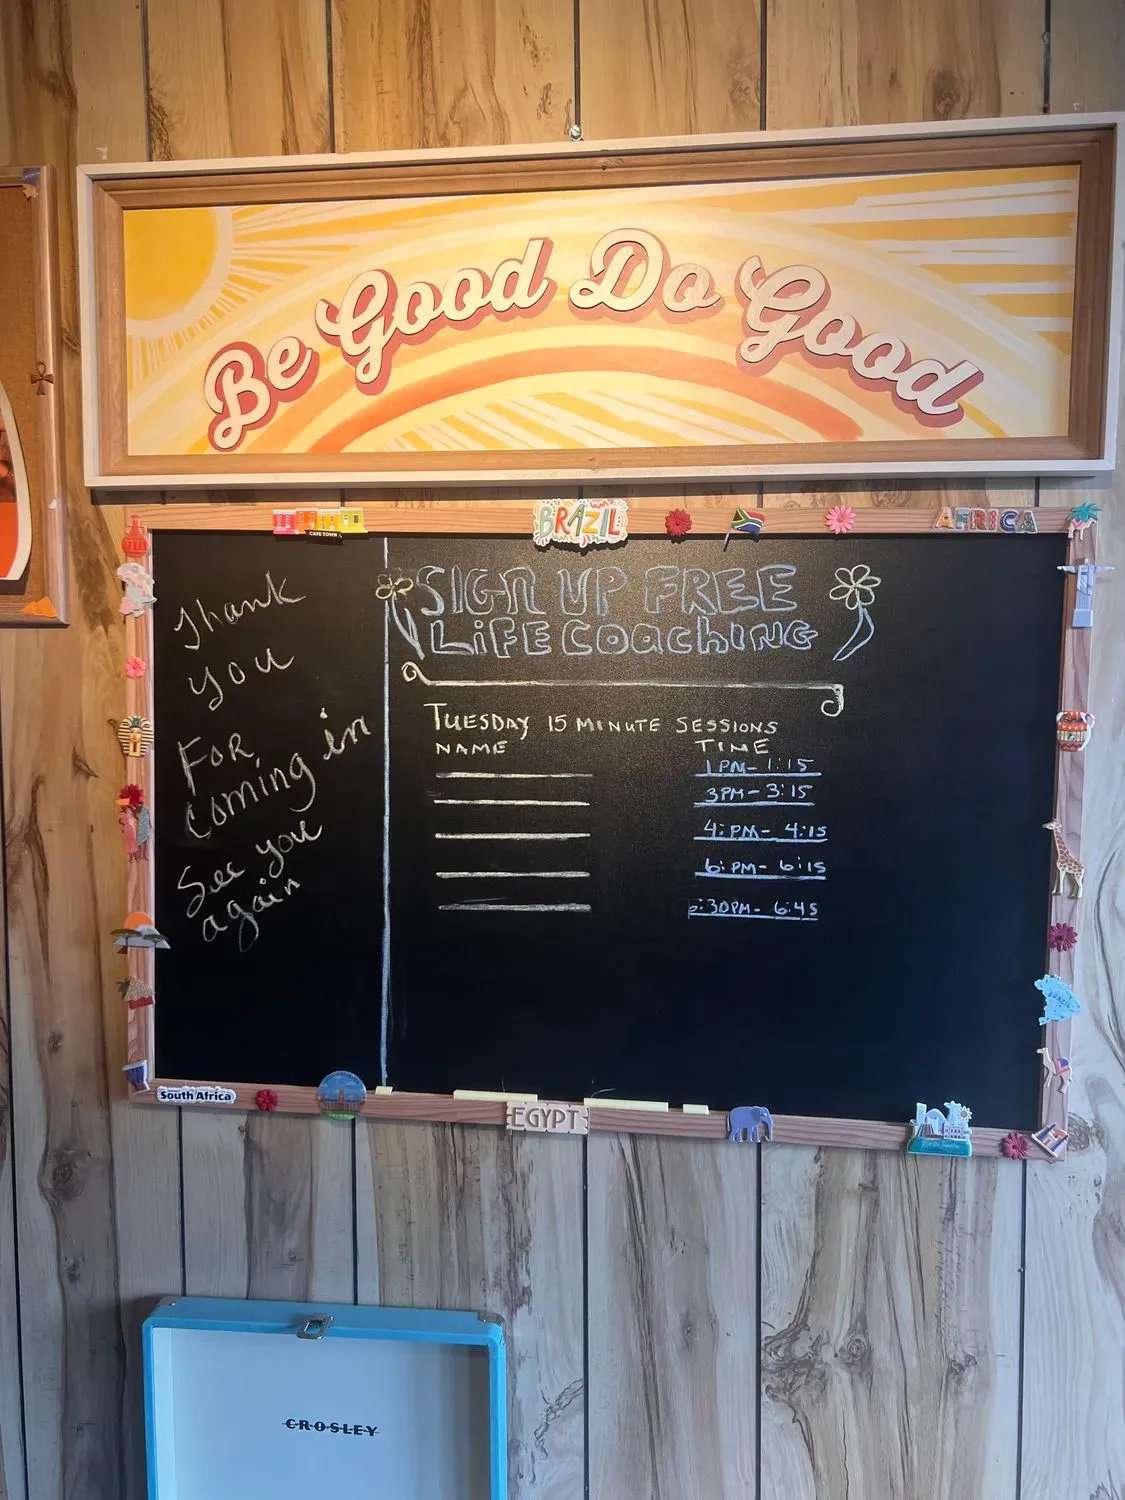 Be Good Do Good
CAPE TOWN
BRAZIL
AFRICA
Thank
you
FOR
coming in
See you
again
SIGN UP FREE
LiFE COachiNG
TUESDAY 15 MINUTE SESSIONS
NAME TIME
1PM- 1:15
3PM- 3:15
4:PM- 4:15
6:PM- 6:15
6:30PM- 6:45
BRAZIL
South Africa
EGYPT
CROSLEY